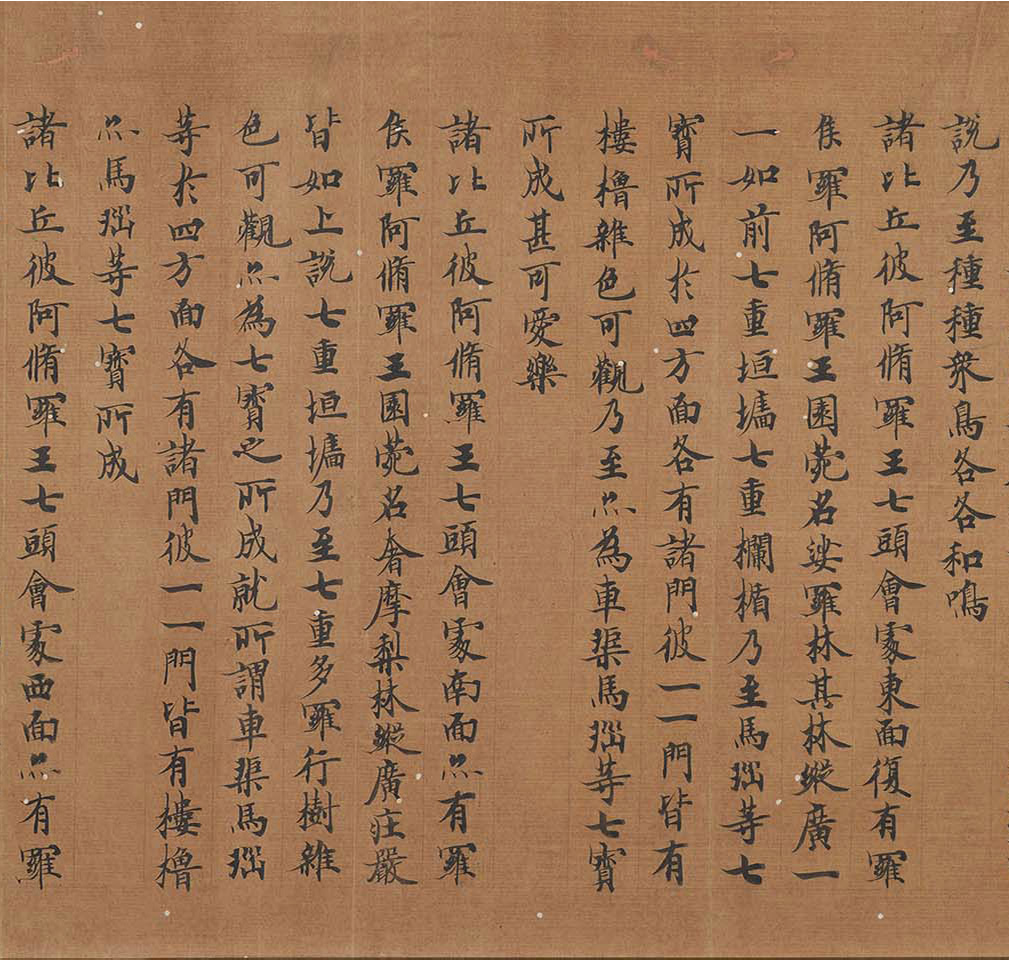 説乃至種種衆鳥各各和鳴
諸比丘彼阿脩羅王七頭會處東面復有羅
侯羅阿脩羅王園苑名娑羅林其林縱廣一
一如前七重垣墻七重欄楯乃至馬瑙等七
寶所成於四方面各有諸門彼一一門皆有
樓櫓雜色可觀乃至亦為車渠馬瑙等七寶
所成甚可愛樂
諸比丘彼阿脩羅王七頭會處南面亦有羅
侯羅阿脩羅王園苑名奢摩梨林縱廣莊嚴
皆如上説七重垣墻乃至七重多羅行樹雜
色可觀亦為七寶之所成就所謂車渠馬瑙
等於四方面各有諸門彼一一門皆有樓櫓
亦馬瑙等七寶所成
諸比丘彼阿脩羅王七頭會處西面亦有羅